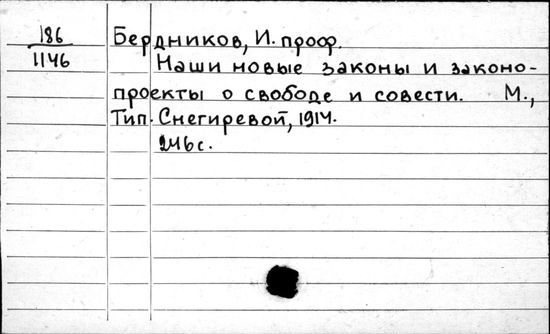 186
1146
Бердников, И. проф.
Наши новые законы и законо-
проекты о свободе и совести. М.,
Тип. Снегиревой, 1914.
246 с.